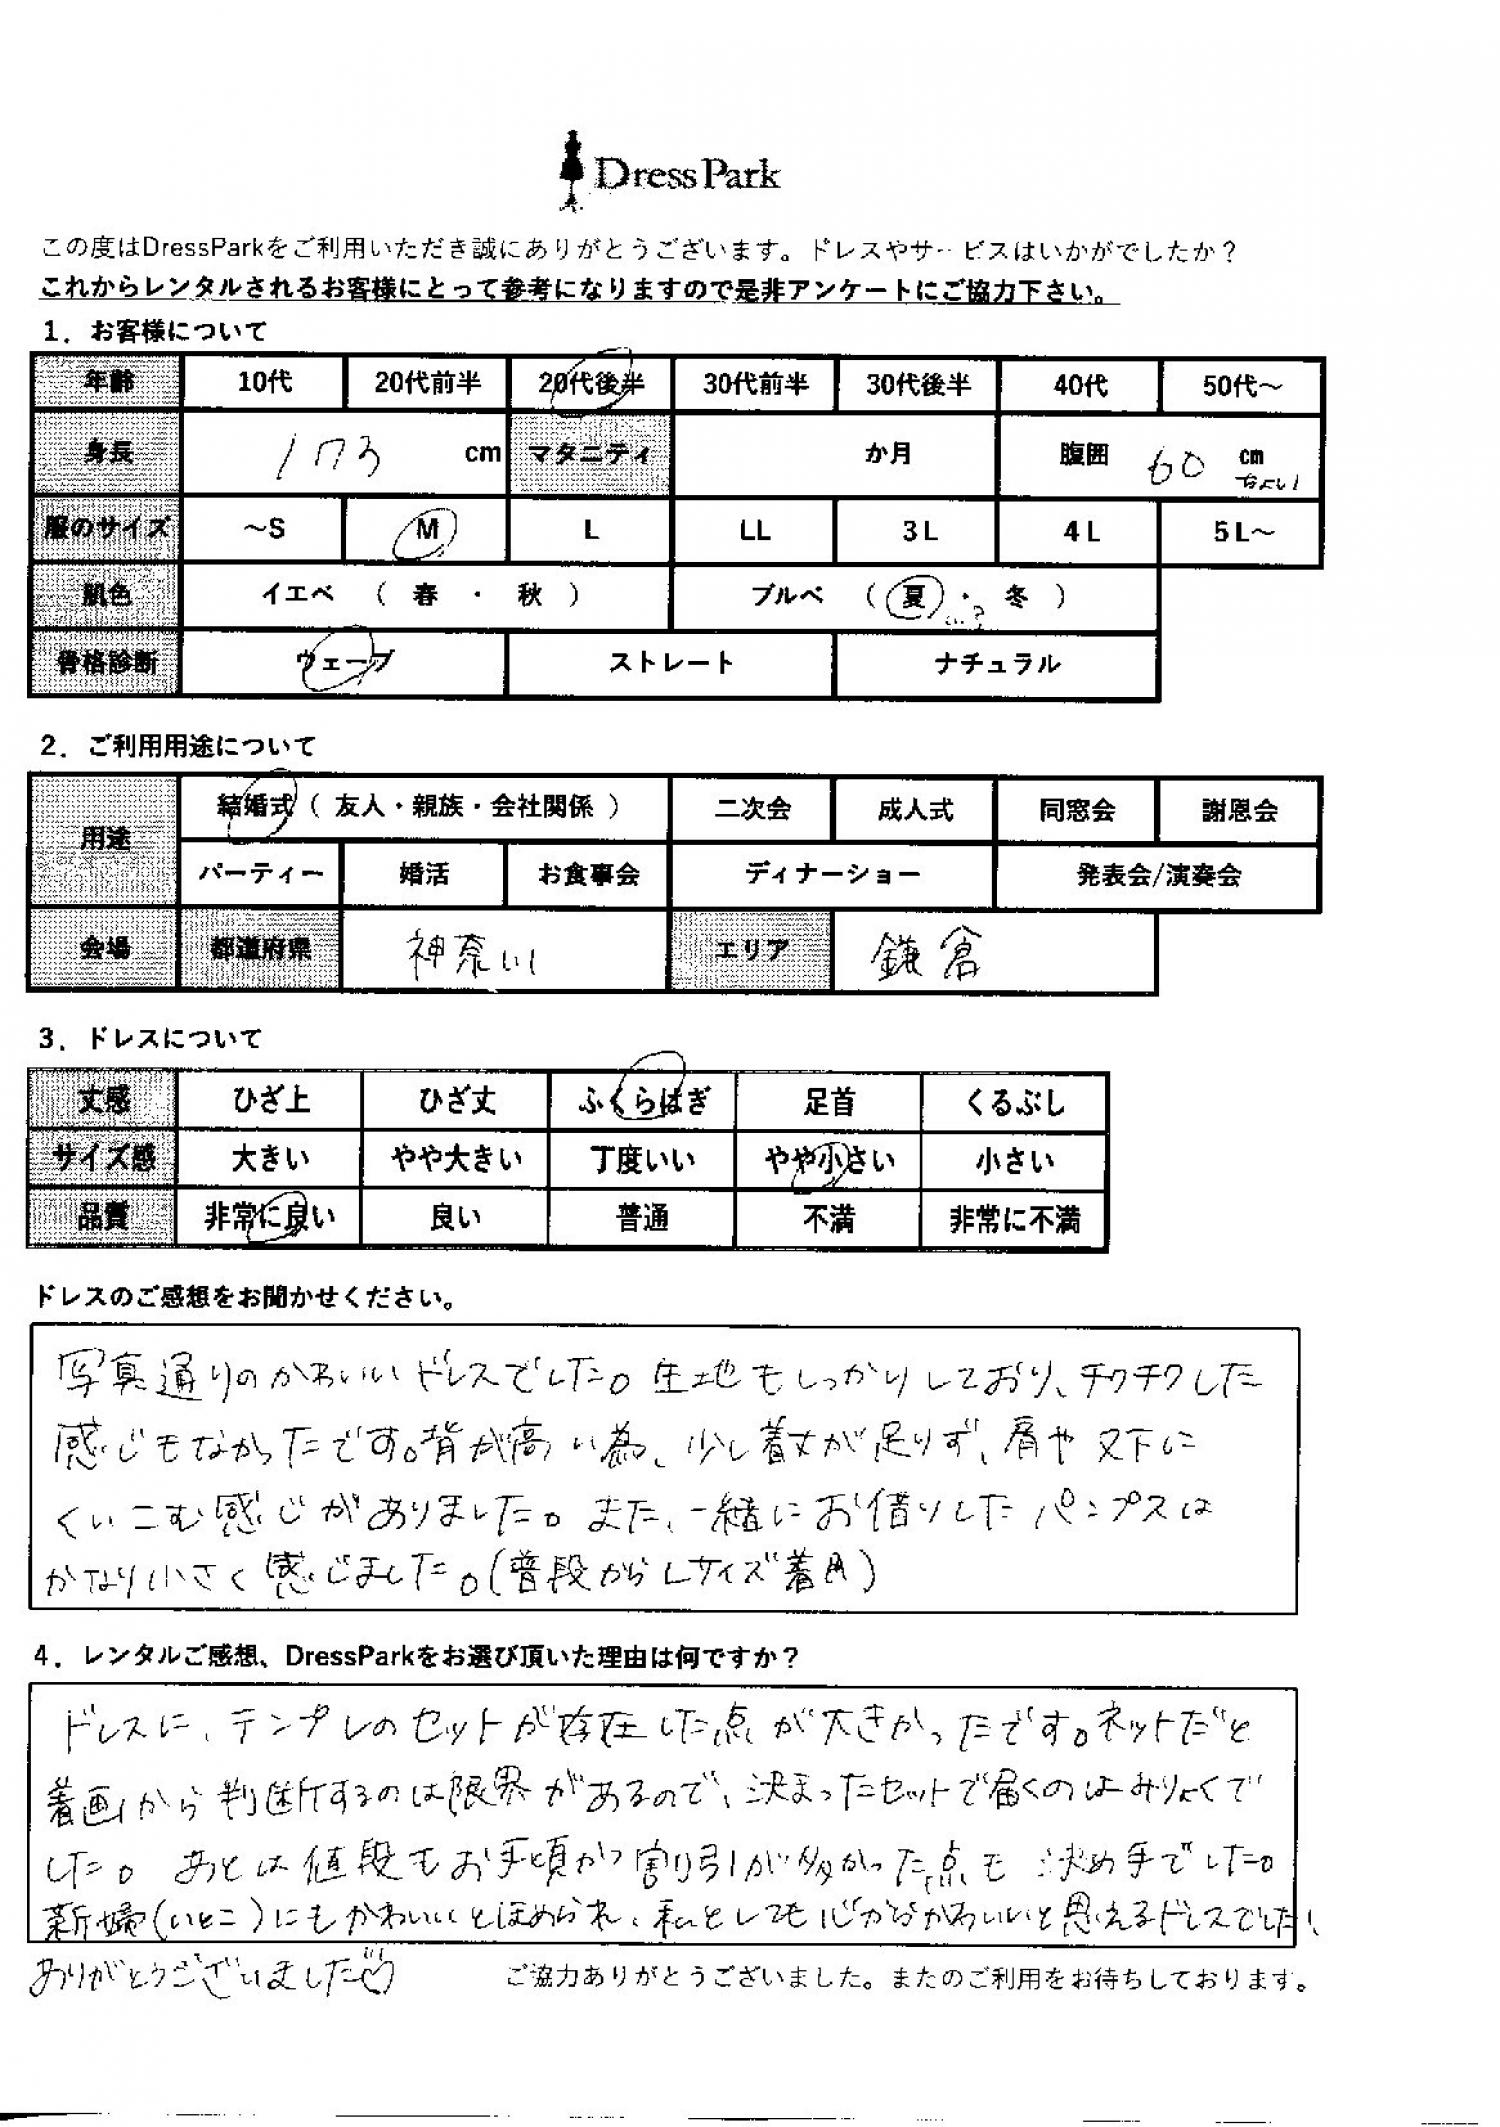 DressPark
この度はDressParkをご利用いただき誠にありがとうございます。ドレスやサービスはいかがでしたか？
これからレンタルされるお客様にとって参考になりますので是非アンケートにご協力下さい。
1．お客様について
年齢 10代 20代前半 20代後半 30代前半 30代後半 40代 50代～
身長 173 cm マタニティ か月 腹囲 60 cm ちょい
服のサイズ ～S M L LL 3L 4L 5L～
肌色 イエベ （ 春 ・ 秋 ） ブルベ （ 夏 ・ 冬 ） …?
骨格診断 ウェーブ ストレート ナチュラル
2．ご利用用途について
用途 結婚式（ 友人・親族・会社関係 ） 二次会 成人式 同窓会 謝恩会
パーティー 婚活 お食事会 ディナーショー 発表会/演奏会
会場 都道府県 神奈川 エリア 鎌倉
3．ドレスについて
丈感 ひざ上 ひざ丈 ふくらはぎ 足首 くるぶし
サイズ感 大きい やや大きい 丁度いい やや小さい 小さい
品質 非常に良い 良い 普通 不満 非常に不満
ドレスのご感想をお聞かせください。
写真通りのかわいいドレスでした。生地もしっかりしており、チクチクした
感じもなかったです。背が高い為、少し着丈が足りず、肩や又下に
くいこむ感じがありました。また、一緒にお借りしたパンプスは
かなり小さく感じました。(普段からLサイズ着用)
4．レンタルご感想、DressParkをお選び頂いた理由は何ですか？
ドレスに、テンプレのセットが存在した点が大きかったです。ネットだと
着画から判断するのは限界があるので、決まったセットで届くのはみりょくで
した。 あとは値段もお手頃かつ割り引が多かった点も決め手でした。
新婦(いとこ)にもかわいいとほめられ、私としても心からかわいいと思えるドレスでした!
ありがとうございました
ご協力ありがとうございました。またのご利用をお待ちしております。